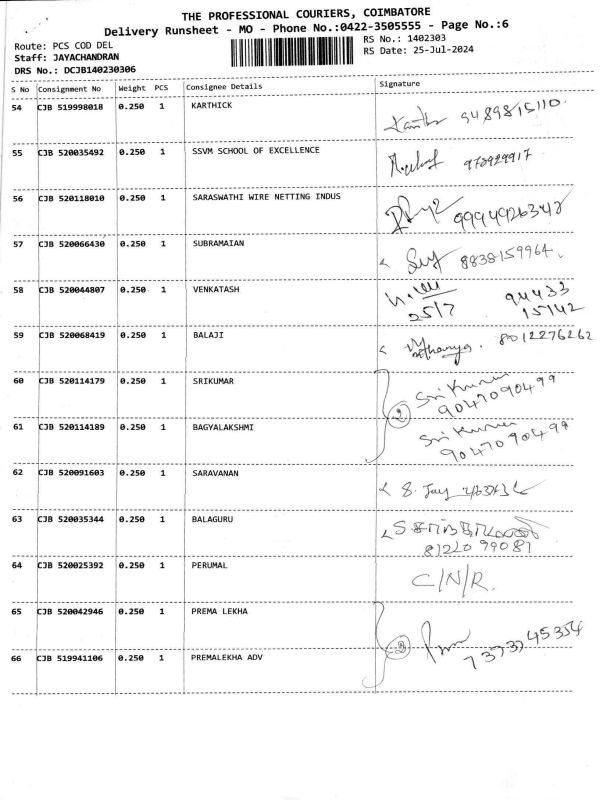 THE PROFESSIONAL COURIERS, COIMBATORE
Delivery Runsheet - MO - Phone No.:0422-3505555 - Page No.:6
Route: PCS COD DEL
RS No.: 1402303
Staff: JAYACHANDRAN
RS Date: 25-Jul-2024
DRS No.: DCJB140230306
S No Consignment No Weight PCS Consignee Details Signature
54 CJB 519998018 0.250 1 KARTHICK 9489815110
55 CJB 520035492 0.250 1 SSVM SCHOOL OF EXCELLENCE 978929917
56 CJB 520118010 0.250 1 SARASWATHI WIRE NETTING INDUS
57 CJB 520066430 0.250 1 SUBRAMAIAN 8838159964
58 CJB 520044807 0.250 1 VENKATASH 94433
25/7 15142
59 CJB 520068419 0.250 1 BALAJI 8012276262
60 CJB 520114179 0.250 1 SRIKUMAR Sri Kumar
9047090499
61 CJB 520114189 0.250 1 BAGYALAKSHMI Sri Kumar
9047090499
62 CJB 520091603 0.250 1 SARAVANAN
63 CJB 520035344 0.250 1 BALAGURU
81220 99081
64 CJB 520025392 0.250 1 PERUMAL C/N/R.
65 CJB 520042946 0.250 1 PREMA LEKHA
66 CJB 519941106 0.250 1 PREMALEKHA ADV